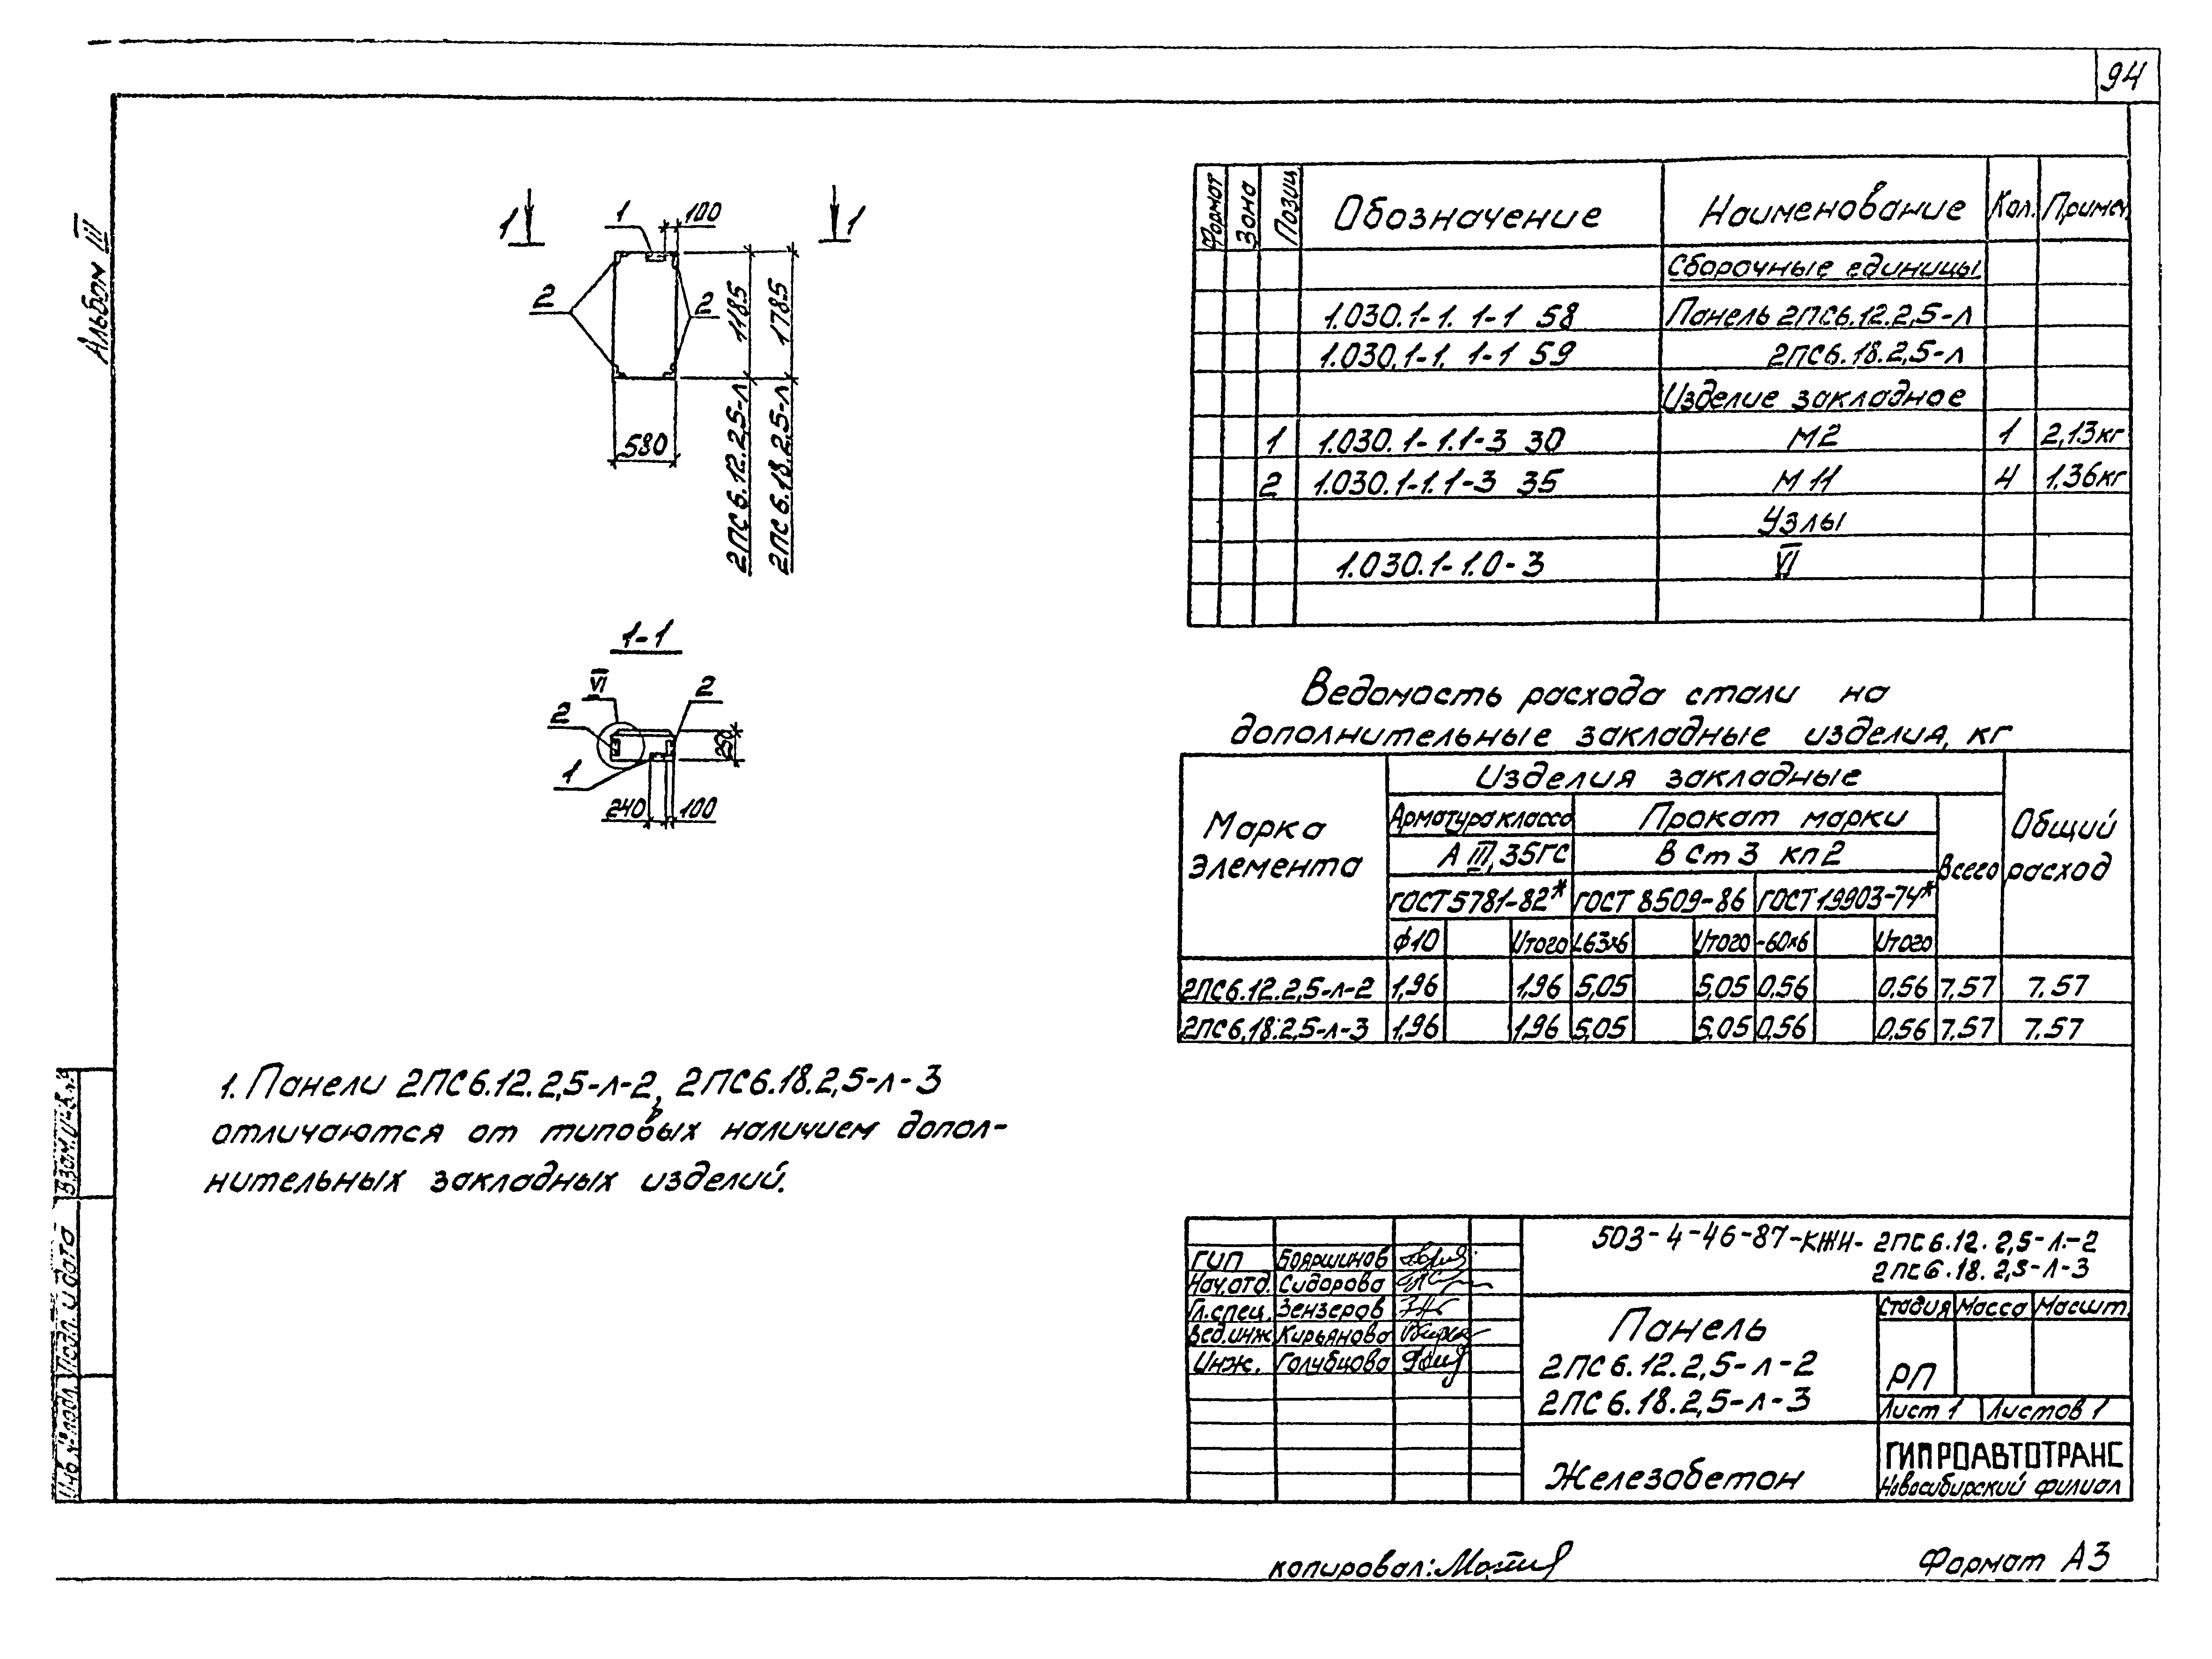 94
Альбом III
1 1
1 100
2 2
1185
1785
580
2ПС6.12.2,5-л
2ПС6.18.2,5-л
1-1
VI
2
2
1
250
240 100
Формат Зона Позиц. Обозначение Наименование Кол. Примеч.
Сборочные единицы
1.030.1-1. 1-1 58 Панель 2ПС6.12.2,5-л
1.030.1-1. 1-1 59 2ПС6.18.2,5-л
Изделие закладное
1 1.030.1-1.1-3 30 М2 1 2,13кг
2 1.030.1-1.1-3 35 М11 4 1,36кг
Узлы
1.030.1-1.0-3 VI
Ведомость расхода стали на
дополнительные закладные изделия, кг
Марка элемента
Изделия закладные
Общий расход
Арматура класса Прокат марки
Всего
А III, 35ГС В Ст 3 кп2
ГОСТ 5781-82* ГОСТ 8509-86 ГОСТ 19903-74*
ф10 Итого L63х6 Итого -60х6 Итого
2ПС6.12.2,5-л-2 1,96 1,96 5,05 5,05 0,56 0,56 7,57 7.57
2ПС6.18.2,5-л-3 1,96 1,96 5,05 5,05 0,56 0,56 7.57 7.57
1. Панели 2ПС6.12.2,5-л-2, 2ПС6.18.2,5-л-3
отличаются от типовых наличием допол-
нительных закладных изделий.
Взам.инв.
Подп. и дата
Инв.№ подл.
503-4-46-87-КЖИ- 2ПС6.12.2,5-Л-2
2ПС6.18.2,5-Л-3
ГИП Бояршинов
Нач.отд. Сидорова
Гл.спец. Зензеров
Вед.инж Кирьянова
Инж. Голубцова
Панель
2ПС6.12.2,5-л-2
2ПС6.18.2,5-л-3
Стадия Масса Масшт.
РП
Лист 1 Листов 1
Железобетон
ГИПРОАВТОТРАНС
Новосибирский филиал
копировал:
Формат А3